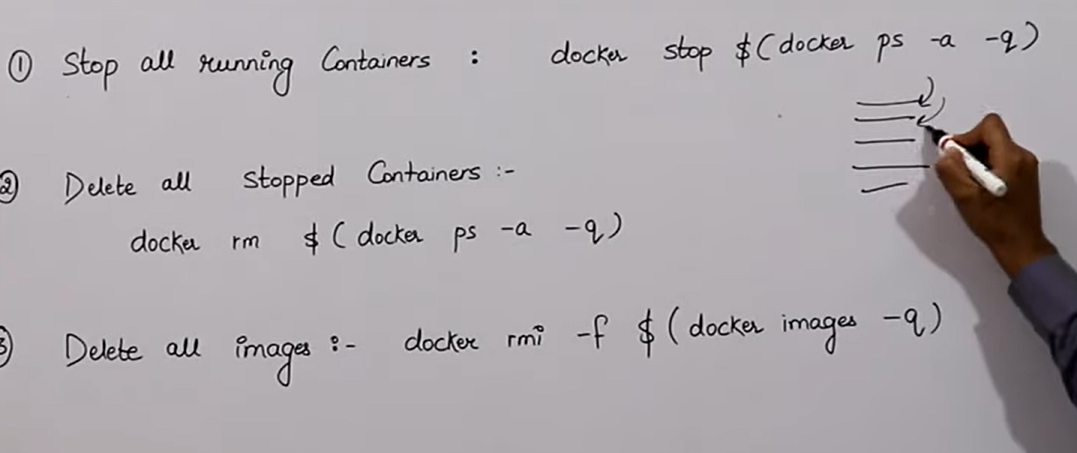 ① Stop all running Containers : docker stop $(docker ps -a -q)
② Delete all Stopped Containers :-
docker rm $(docker ps -a -q)
③ Delete all images :- docker rmi -f $(docker images -q)